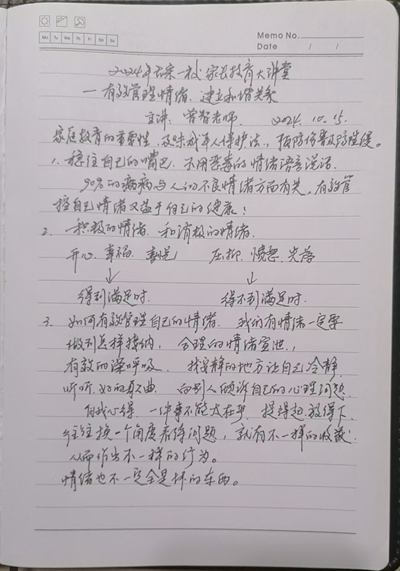 Memo No.
Mo Tu We Th Fr Sa Su
Date / /
2024年 一校 家长教育大讲堂
— 有效管理情绪,建立和谐关系
主讲: 老师 2024.10.15.
家庭教育的重要性,及味成年人保护法,预防伤害及防性侵。
1、稳住自己的嘴巴,不用 的情绪语言说话.
90%的疾病与人的不良情绪方面有关,有效管
控自己情绪又益于自己的健康!
2. 一积极的情绪 和消极的情绪.
开心. 幸福. 喜悦 压抑. 愤怒. 失落
↓ ↓
得到满足时. 得不到满足时.
3. 如何有效管理自己的情绪. 我的有情绪一定要
做不怎样接纳, 合理的情绪宣泄,
有效的深呼吸, 找安静的地方让自己冷静
听听好的歌曲. 向别人倾诉自己的心理问题.
自我心得. 一件事不能太在乎, 提得起.放得下.
往往换一个角度看待问题, 就有不一样的收获!
从而作出不一样的行为。
情绪也不一定全是坏的东西。